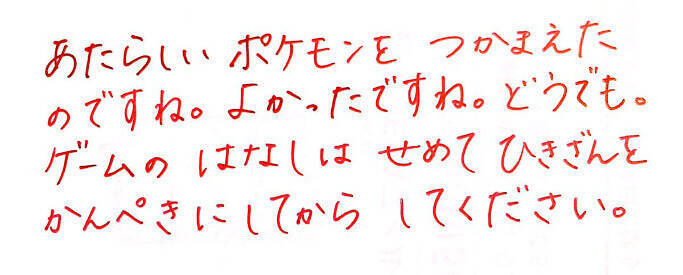 あたらしい ポケモンを つかまえた
のですね。よかったですね。どうでも。
ゲームの はなしは せめて ひきざんを
かんぺきにしてから してください。